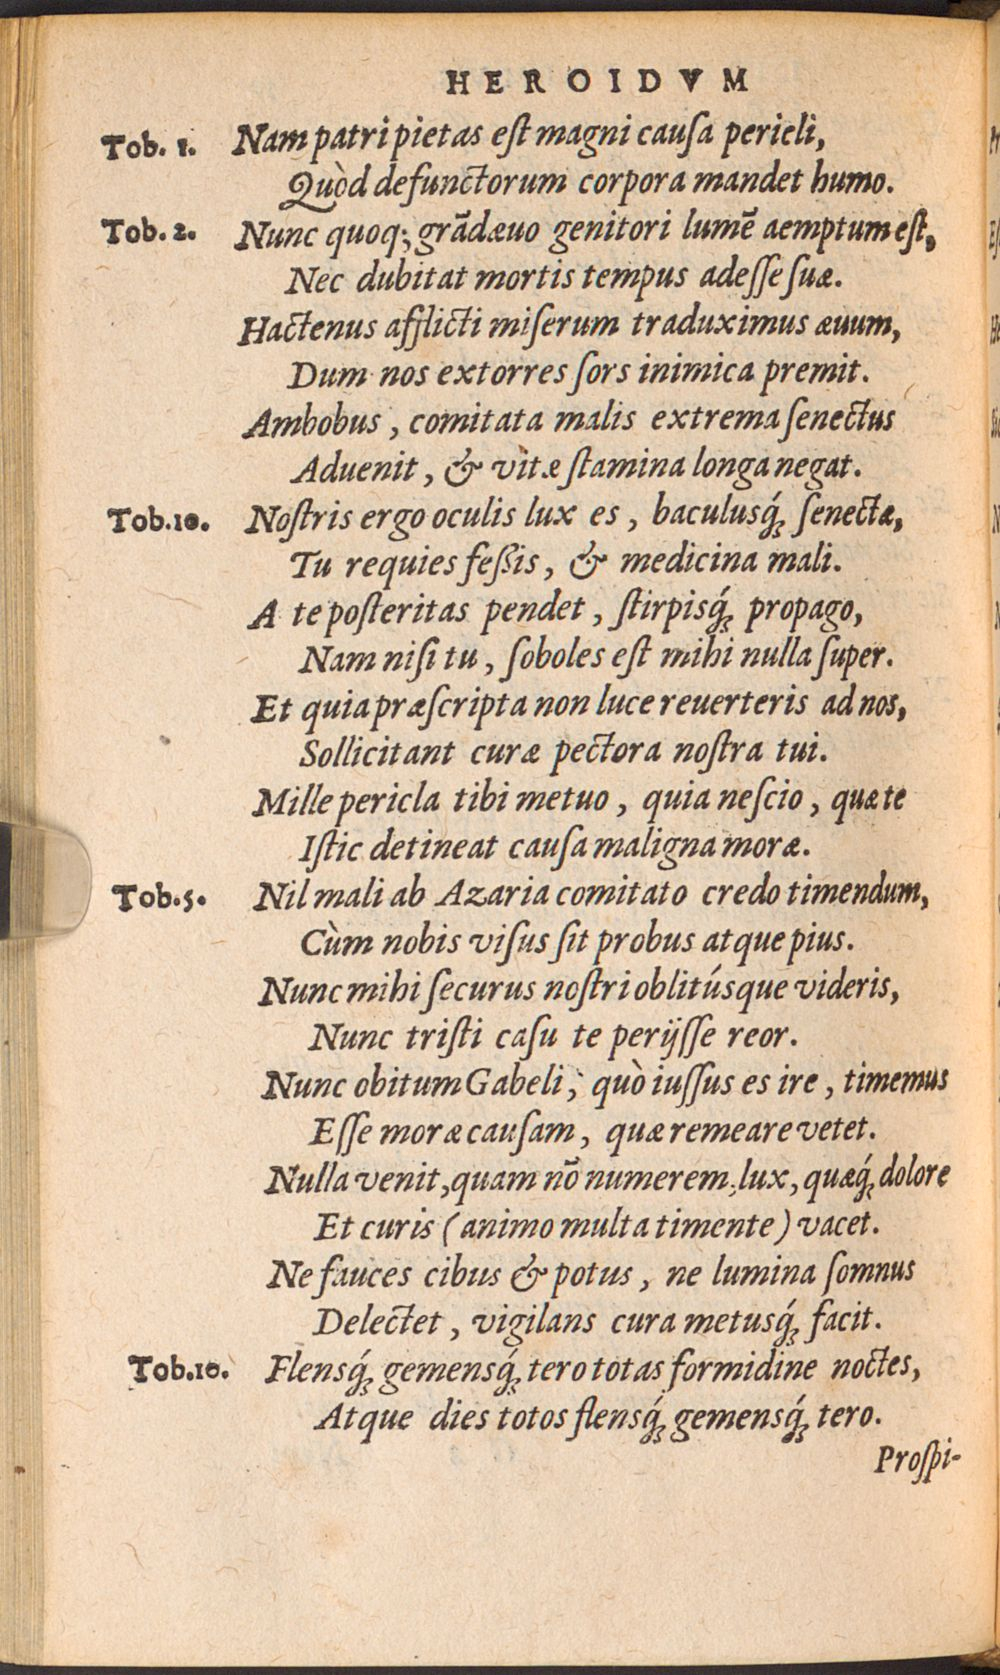 HEROIDVM
Tob. 1. Nam patri pietas eſt magni cauſa pericli,
Quòd defunctorum corpora mandet humo.
Tob. 2. Nunc quoq; grãdæuo genitori lumẽ aemptum eſt,
Nec dubitat mortis tempus adeſſe ſuæ.
Hactenus afflicti miſerum traduximus æuum,
Dum nos extorres ſors inimica premit.
Ambobus, comitata malis extrema ſenectus
Aduenit, & vitæ ſtamina longa negat.
Tob. 10. Noſtris ergo oculis lux es, baculusq́; ſenectæ,
Tu requies feßis, & medicina mali.
A te poſteritas pendet, ſtirpisq́; propago,
Nam niſi tu, ſoboles eſt mihi nulla ſuper.
Et quia præſcripta non luce reuerteris ad nos,
Sollicitant curæ pectora noſtra tui.
Mille pericla tibi metuo, quia neſcio, quæ te
Iſtic detineat cauſa maligna moræ.
Tob. 5. Nil mali ab Azaria comitato credo timendum,
Cùm nobis viſus ſit probus atque pius.
Nunc mihi ſecurus noſtri oblitúsque videris,
Nunc triſti caſu te perijſſe reor.
Nunc obitum Gabeli, quò iuſſus es ire, timemus
Eſſe moræ cauſam, quæ remeare vetet.
Nulla venit, quam nõ numerem, lux, quæq́; dolore
Et curis (animo multa timente) vacet.
Ne fauces cibus & potus, ne lumina ſomnus
Delectet, vigilans cura metusq́; facit.
Tob. 10. Flensq́; gemensq́; tero totas formidine noctes,
Atque dies totos flensq́; gemensq́; tero.
Proſpi-